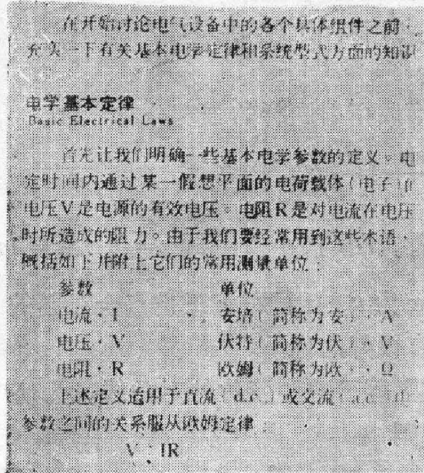 在开始讨论电气设备中的各个具体组件之前,
充实一下有关基本电学定律和系统型式方面的知识
电学基本定律
Basic Electrical Laws
首先让我们明确一些基本电学参数的定义。电
定时间内通过某一假想平面的电荷载体(电子)的
电压V是电源的有效电压。电阻R是对电流在电压
时所造成的阻力。由于我们要经常用到这些术语,
概括如下并附上它们的常用测量单位:
参数 单位
电流,I 安培(简称为安),A
电压,V 伏特(简称为伏),V
电阻,R 欧姆(简称为欧),Ω
上述定义适用于直流(d.c.)或交流(a.c.)
参数之间的关系服从欧姆定律
V IR